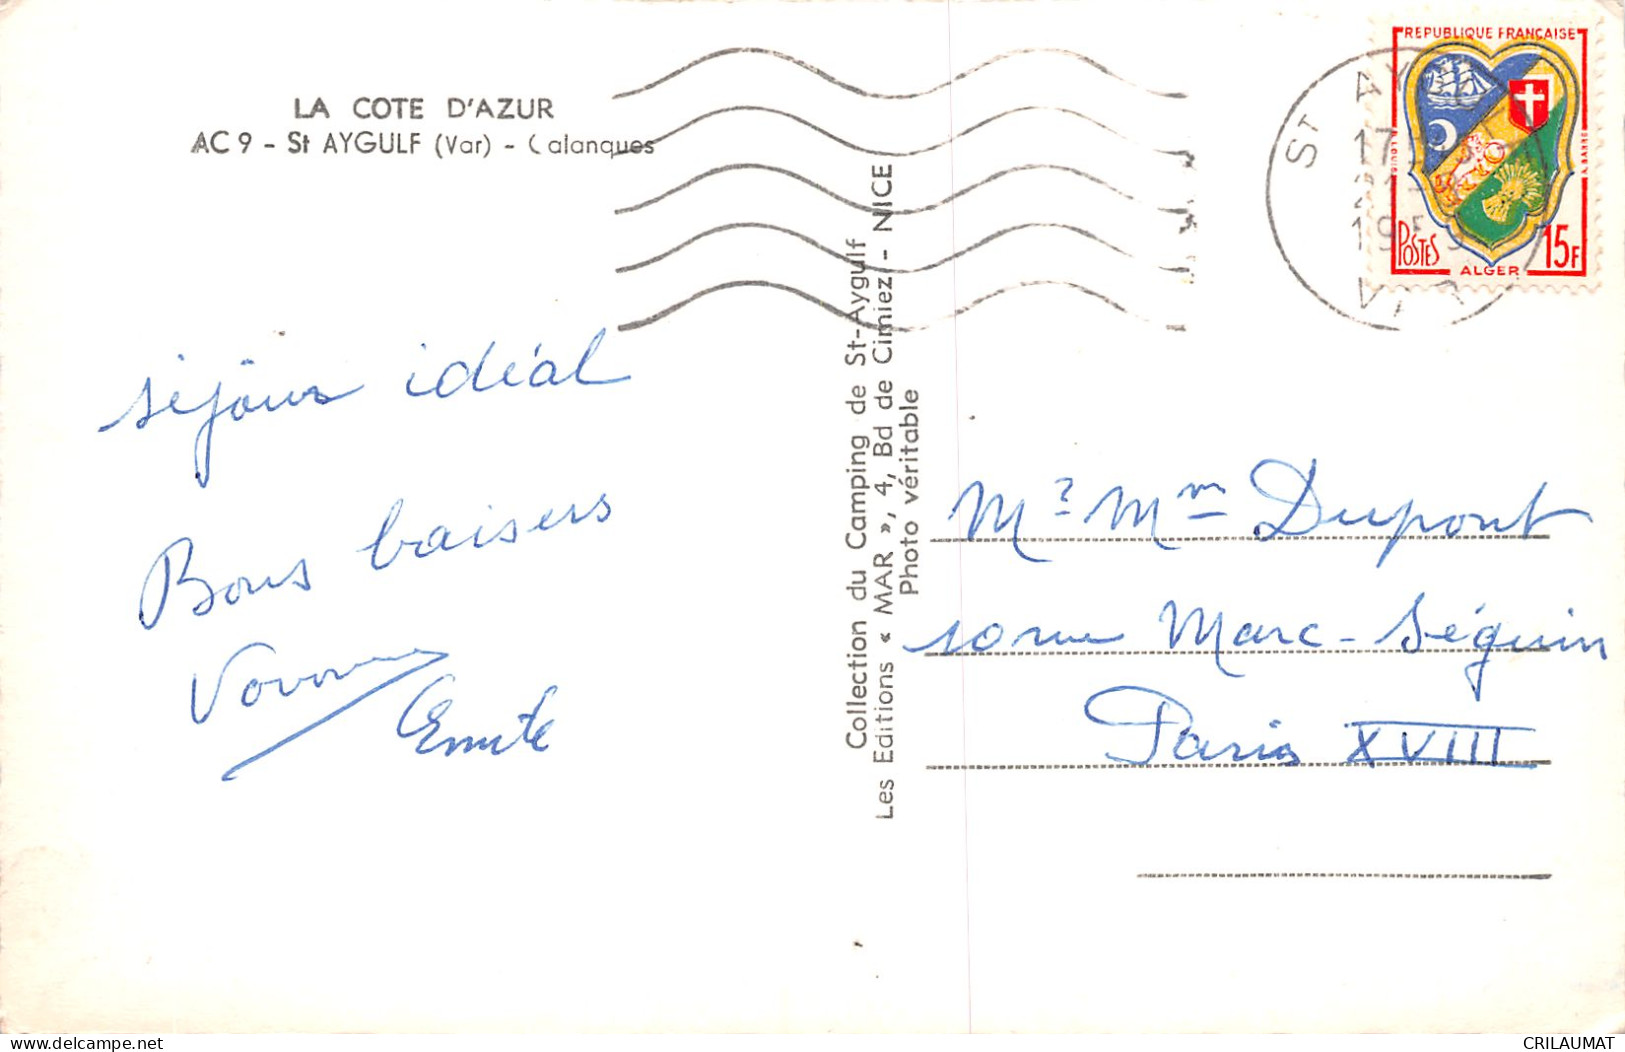 LA COTE D'AZUR
AC 9 - St AYGULF (Var) - Calanques
séjour idéal
Bons baisers
Collection du Camping de St-Aygulf
Les Editions « MAR », 4, Bd de Cimiez - NICE
Photo véritable
REPUBLIQUE FRANÇAISE
POSTES
ALGER
15F
St AYGULF
17
1959
VAR
Mr Mme Dupont
10 rue Marc-Séguin
Paris XVIII
delcampe.net
CRILAUMAT